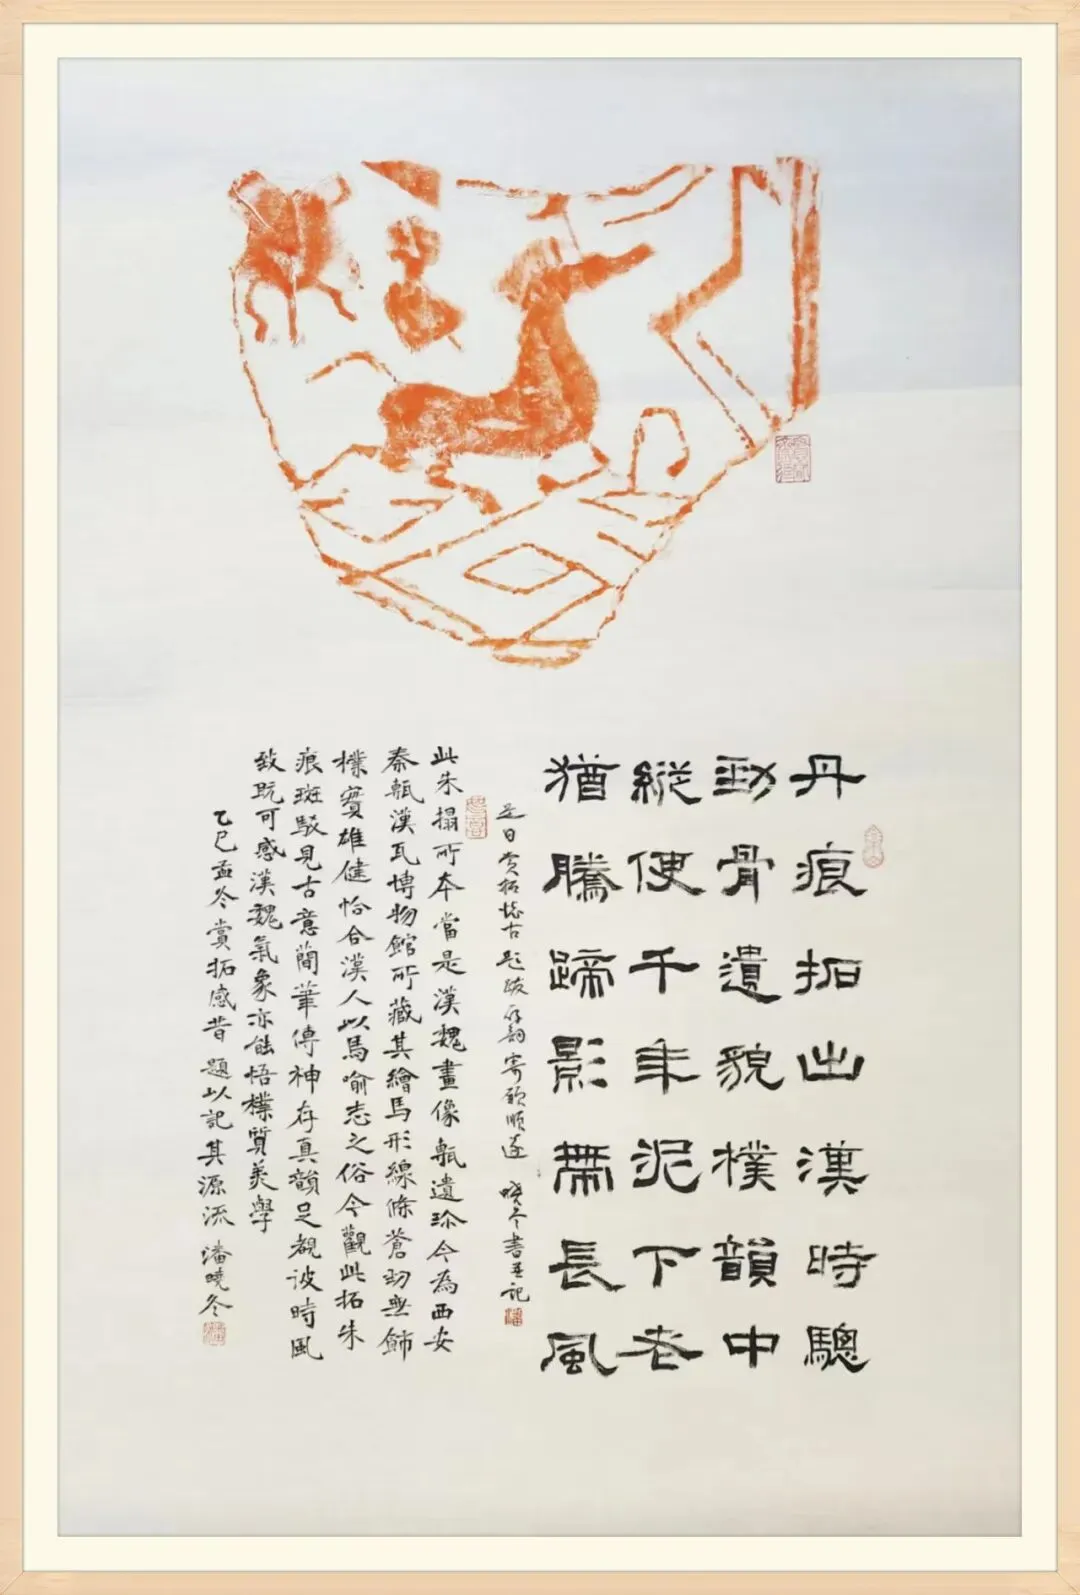 丹痕拓出漢時驄
勁骨遺貌樸韻中
縱使千年泥下老
猶騰蹄影舞長風
是日賞拓懷古題跋 寄欽順遂 曉冬書並記
此朱搨所本當是漢魏畫像甎遺珍今為西安
秦甎漢瓦博物館所藏其繪馬形線條蒼勁無飾
樸實雄健恰合漢人以馬喻志之俗今觀此拓朱
痕斑駁見古意簡筆傳神存真韻足覩彼時風
致既可感漢魏氣象亦能悟樸質美學
乙巳孟冬賞拓感昔題以記其源流潘曉冬